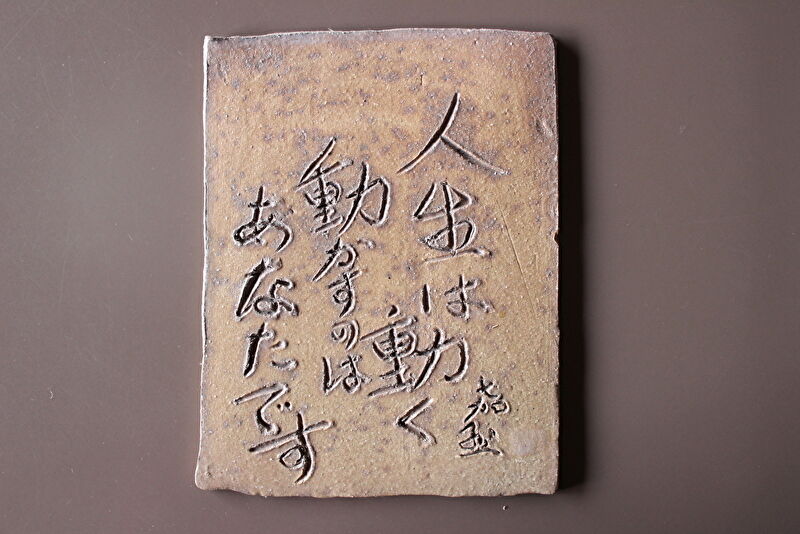 人生は動く
動かすのは
あなたです